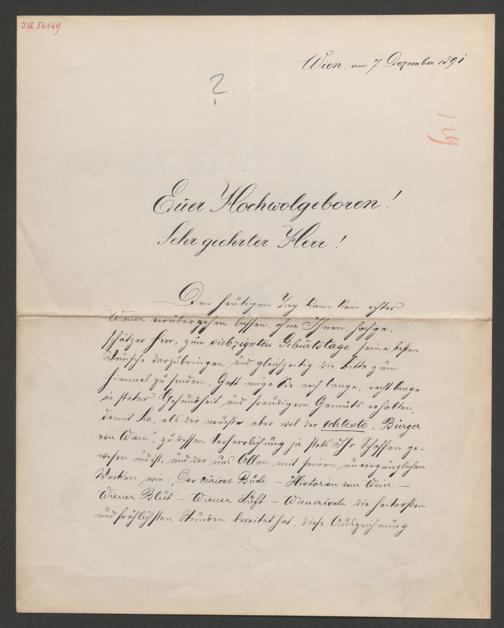 I.N. 54149
Wien, am 7 Dezember 1891
?
129
Euer Hochwolgeboren!
Sehr geehrter Herr!
Den heutigen Tag kann kein echter
Wiener vorübergehen lassen, ohne Ihnen, hochge-
schätzter Herr, zum siebzigsten Geburtstage, seine besten
Wünsche darzubringen, und gleichzeitig die Bitte zum
Himmel zu senden, Gott möge Sie noch lange, recht lange
in steter Gesundheit und freudigem Gemüts erhalten,
damit Sie, als der neueste, aber wol der echteste „Bürger
von Wien“, zu dessen Verherrlichung ja stets Ihr Schaffen ge-
wesen ist, und der uns Allen mit seinen unvergänglichen
Werken, wie: Das curiose Buch – Historien von Wien –
Wiener Blut – Wiener Luft – die heitersten
und fröhlichsten Stunden bereitet hat, diese Auszeichnung